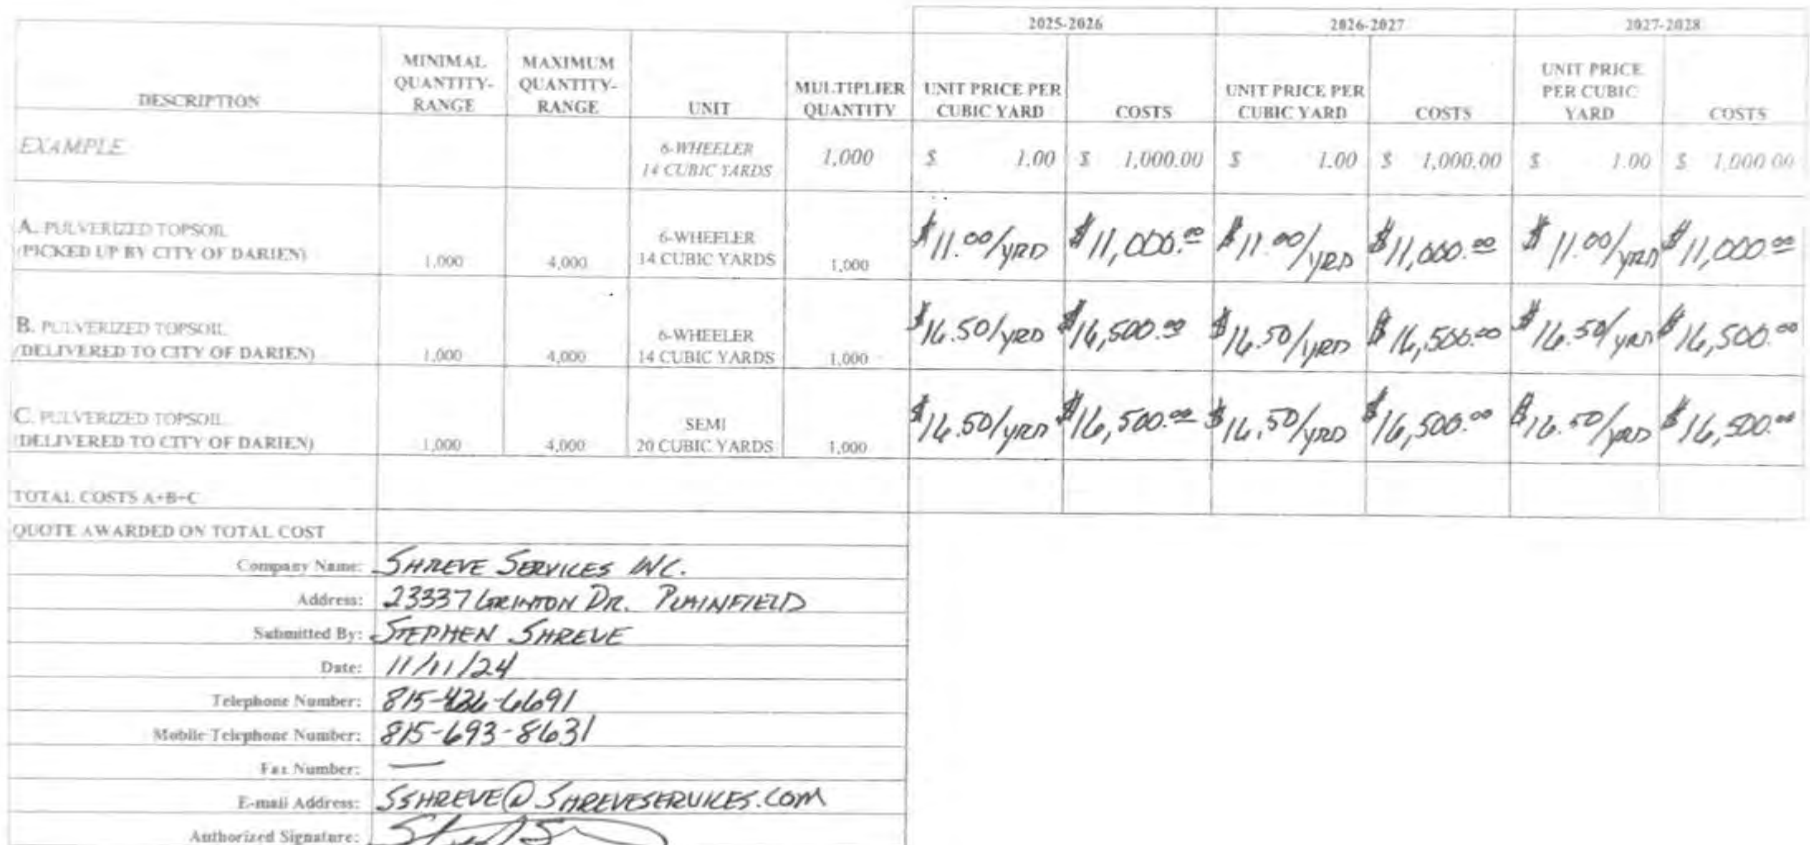 2025-2026 2026-2027 2027-2028
DESCRIPTION MINIMAL QUANTITY-RANGE MAXIMUM QUANTITY-RANGE UNIT MULTIPLIER QUANTITY UNIT PRICE PER CUBIC YARD COSTS UNIT PRICE PER CUBIC YARD COSTS UNIT PRICE PER CUBIC YARD COSTS
EXAMPLE 6-WHEELER 14 CUBIC YARDS 1,000 $ 1.00 $ 1,000.00 $ 1.00 $ 1,000.00 $ 1.00 $ 1,000.00
A. PULVERIZED TOPSOIL (PICKED UP BY CITY OF DARIEN) 1,000 4,000 6-WHEELER 14 CUBIC YARDS 1,000 $11.00/YRD $11,000.00 $11.00/YRD $11,000.00 $11.00/YRD $11,000.00
B. PULVERIZED TOPSOIL (DELIVERED TO CITY OF DARIEN) 1,000 4,000 6-WHEELER 14 CUBIC YARDS 1,000 $16.50/YRD $16,500.00 $16.50/YRD $16,500.00 $16.50/YRD $16,500.00
C. PULVERIZED TOPSOIL (DELIVERED TO CITY OF DARIEN) 1,000 4,000 SEMI 20 CUBIC YARDS 1,000 $16.50/YRD $16,500.00 $16.50/YRD $16,500.00 $16.50/YRD $16,500.00
TOTAL COSTS A+B+C
QUOTE AWARDED ON TOTAL COST
Company Name: SHREVE SERVICES INC.
Address: 23337 GRINTON DR. PLAINFIELD
Submitted By: STEPHEN SHREVE
Date: 11/11/24
Telephone Number: 815-436-6691
Mobile Telephone Number: 815-693-8631
Fax Number: —
E-mail Address: SSHREVE@SHREVESERVICES.COM
Authorized Signature: